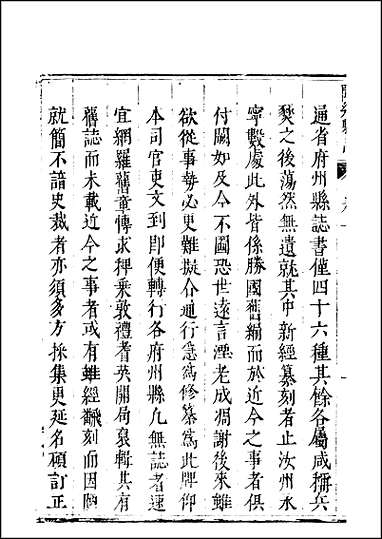 通省府州縣誌書僅四十六種其餘各屬咸稱兵
燹之後蕩然無遺就其中新經纂刻者止汝州永
寧數處此外皆係勝國舊編而於近今之事者俱
付闕如及今不圖恐世遠言湮老成凋謝後來雖
欲從事勢必更難擬合通行急為修纂為此牌仰
本司官吏文到即便轉行各府州縣凡無誌者速
宜網羅舊童傳求稗乘敦禮耆英開局裒輯其有
舊誌而未載近今之事者或有雖經翻刻而因陋
就簡不諳史裁者亦須多方採集更延名碩訂正